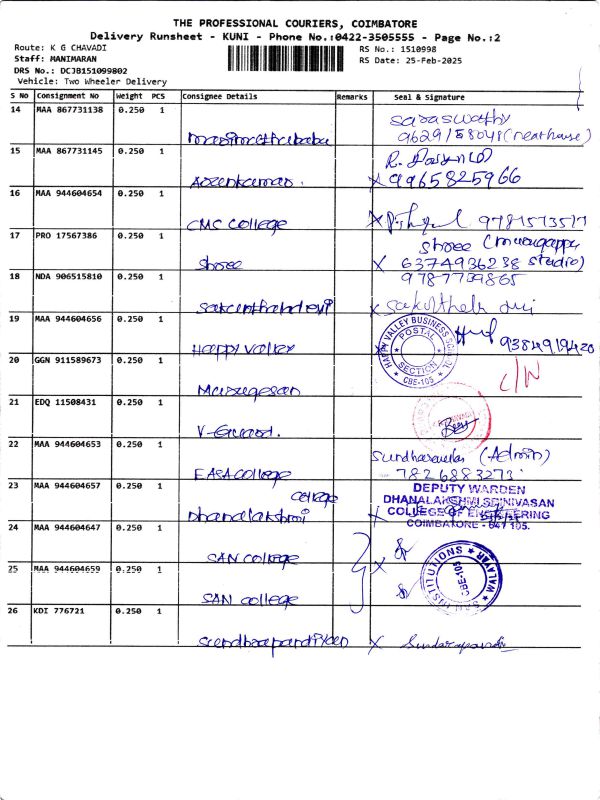 THE PROFESSIONAL COURIERS, COIMBATORE
Delivery Runsheet - KUNI - Phone No.:0422-3505555 - Page No.:2
Route: K G CHAVADI
RS No.: 1510998
Staff: MANIMARAN
RS Date: 25-Feb-2025
DRS No.: DCJB151099802
Vehicle: Two Wheeler Delivery
S No Consignment No Weight PCS Consignee Details Remarks Seal & Signature
14 MAA 867731138 0.250 1
saraswathy
(near house)
15 MAA 867731145 0.250 1
9965825966
16 MAA 944604654 0.250 1
CMC College
17 PRO 17567386 0.250 1
Shree
Shree
studio)
6374936238
18 NDA 906515810 0.250 1
9787739865
19 MAA 944604656 0.250 1
Happy Valley
HAPPY VALLEY BUSINESS SCHOOL
POSTAL SECTION
CBE-105
9384919420
20 GGN 911589673 0.250 1
Murugesan
C/N
21 EDQ 11508431 0.250 1
V-Guard.
22 MAA 944604653 0.250 1
EASA College
(Admin)
7826883273
23 MAA 944604657 0.250 1
Dhanalakshmi College
DEPUTY WARDEN
DHANALAKSHMI SRINIVASAN
COLLEGE OF ENGINEERING
COIMBATORE - 641 105.
24 MAA 944604647 0.250 1
SAN College
25 MAA 944604659 0.250 1
SAN College
CBE-105
26 KDI 776721 0.250 1
Sundarapandi